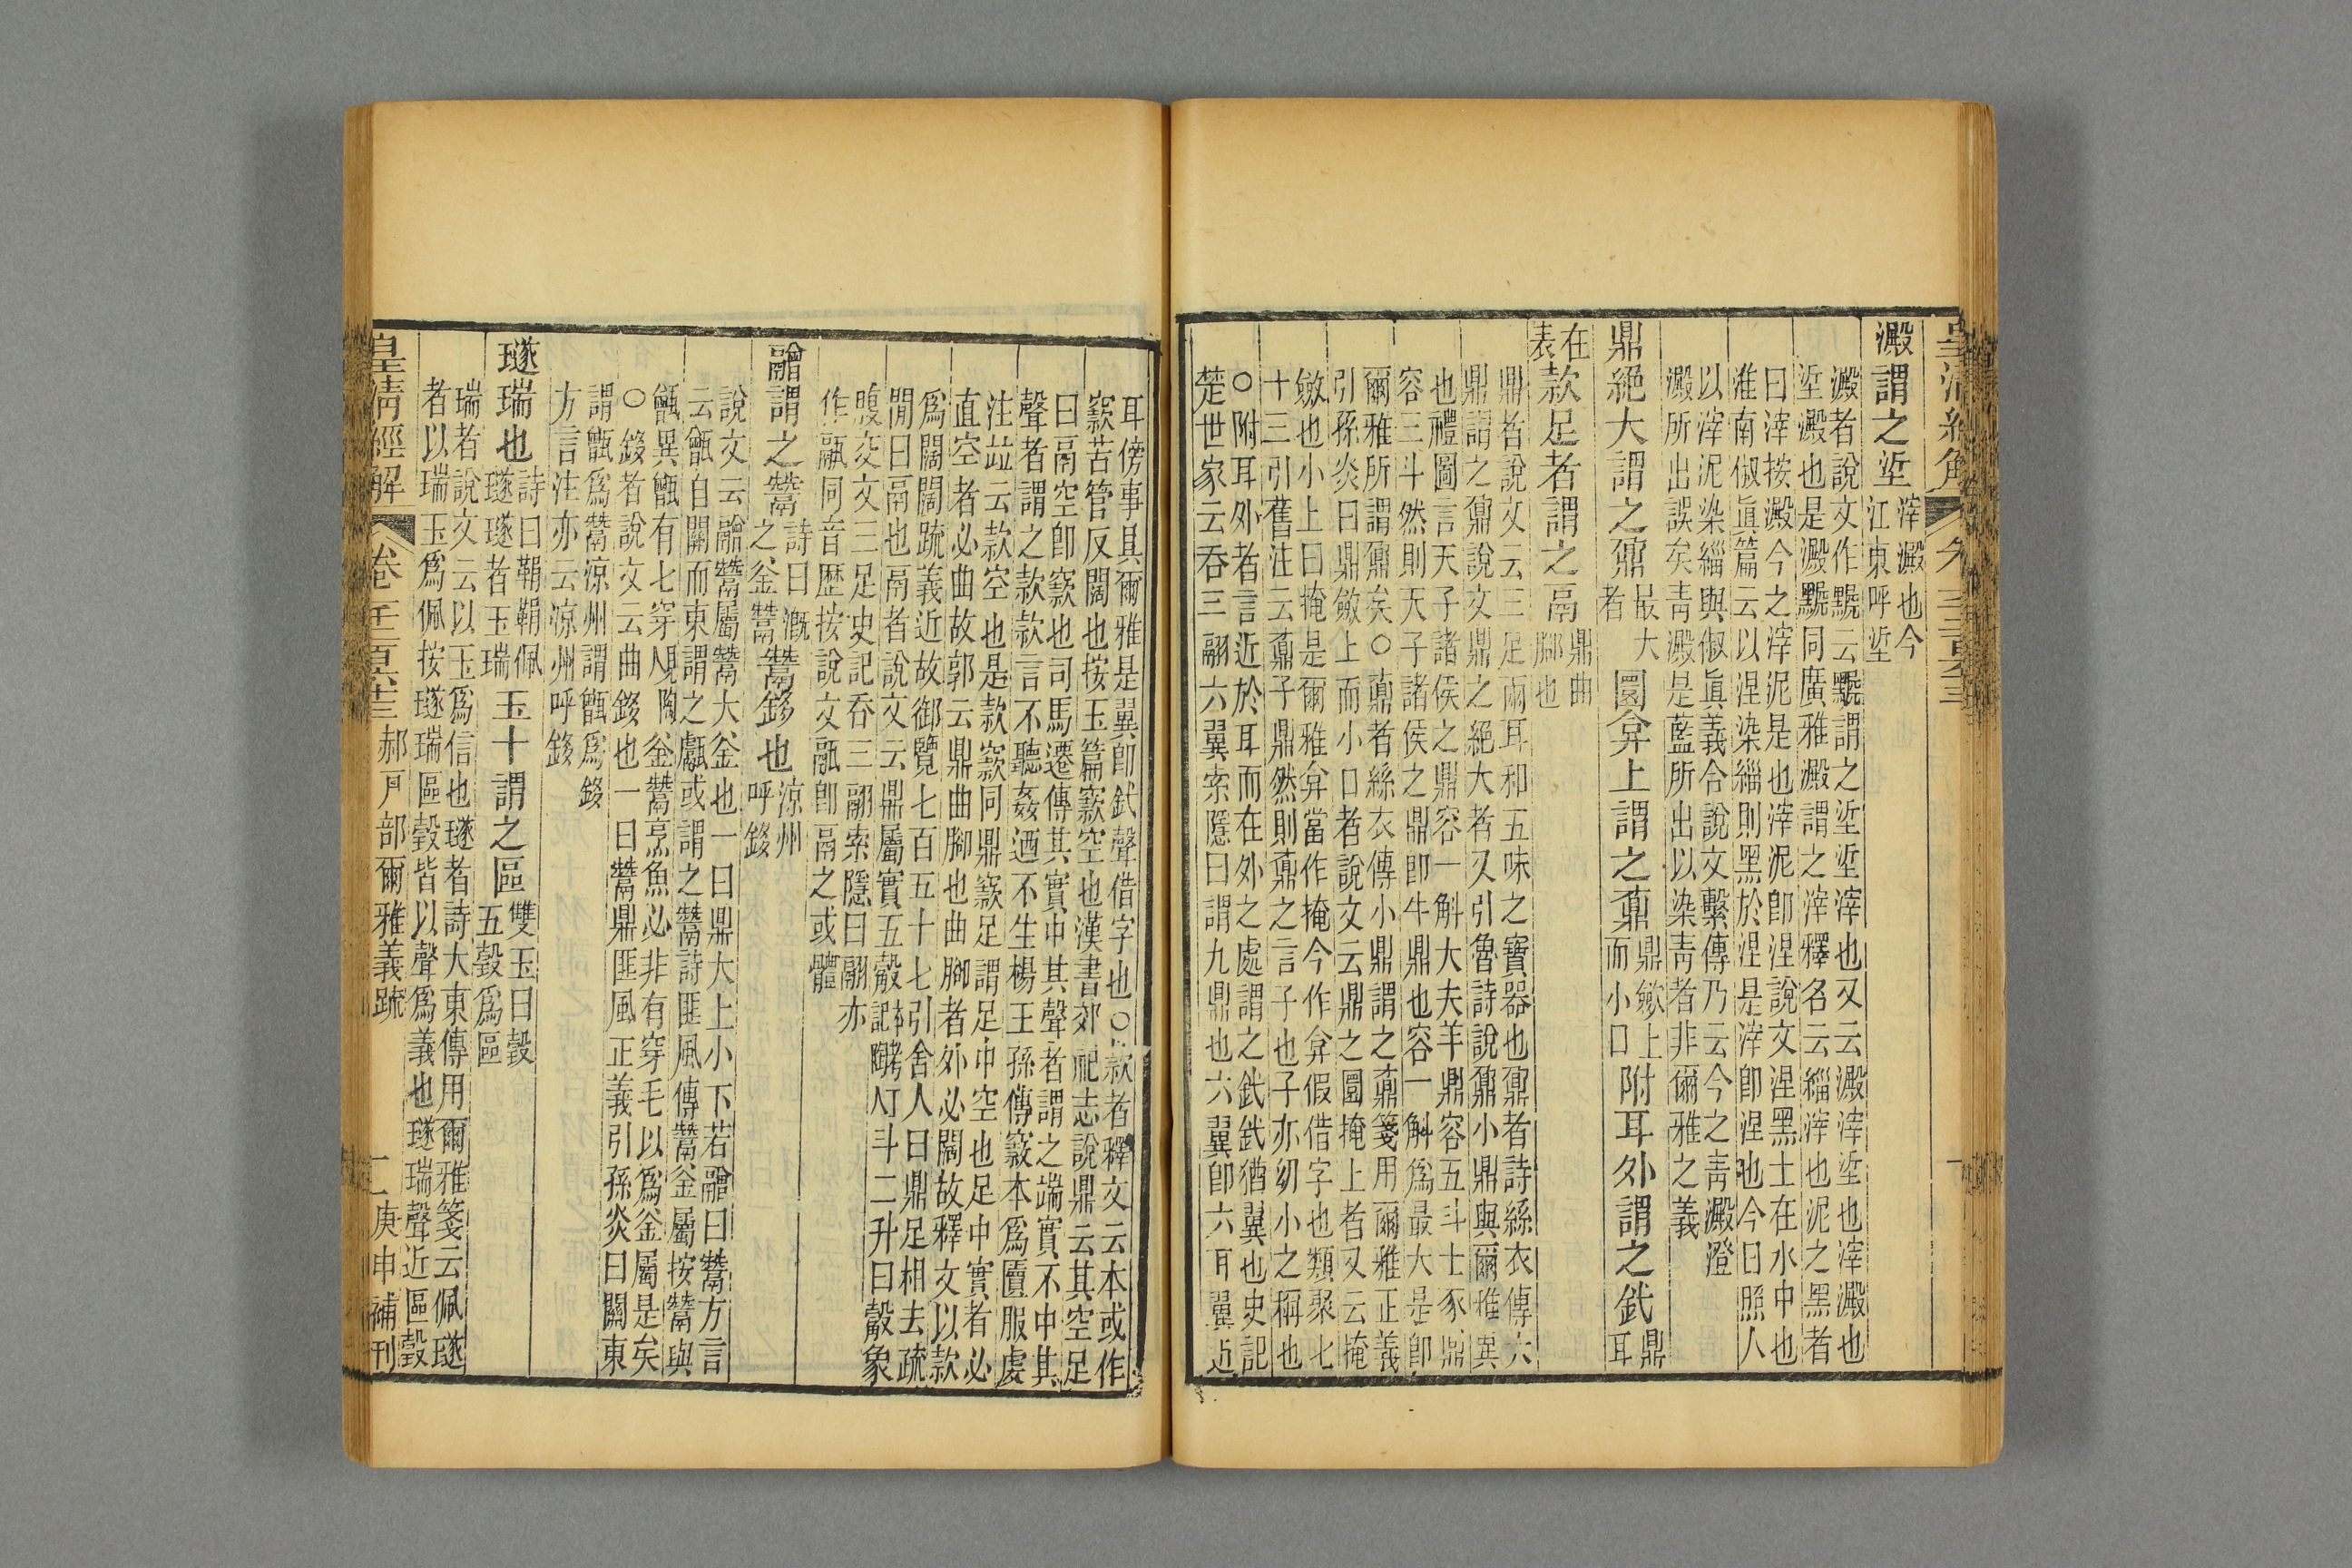 澱謂之垽滓澱也今
江東呼垽
澱者說文作黗云黗謂之垽垽滓也又云澱滓垽也滓澱也
垽澱也是澱黗同廣雅澱謂之滓釋名云緇滓也泥之黑者
曰滓按澱今之滓泥是也滓泥卽涅說文涅黑土在水中也
淮南俶眞篇云以涅染緇則黑於涅是滓卽涅也今日照人
以滓泥染緇與俶眞義合說文繫傳乃云今之靑澱澄
澱所出誤矣靑澱是藍所出以染靑者非爾雅之義
鼎絕大謂之鼐最大
者圜弇上謂之鼒鼎斂上
而小口附耳外謂之釴鼎耳
在表款足者謂之鬲鼎曲
腳也
鼎者說文云三足兩耳和五味之寶器也鼐者詩絲衣傳大
鼎謂之鼐說文鼎之絕大者又引魯詩說鼐小鼎與爾雅異
也禮圖言天子諸侯之鼎容一斛大夫羊鼎容五斗士豕鼎
容三斗然則天子諸侯之鼎卽牛鼎也容一斛爲最大是卽
爾雅所謂鼐矣○鼒者絲衣傳小鼎謂之鼒箋用爾雅正義
引孫炎曰鼎斂上而小口者說文云鼎之圜掩上者又云掩
斂也小上曰掩是爾雅弇當作掩今作弇假借字也類聚七
十三引舊注云鼒子鼎然則鼒之言子也子亦幼小之稱也
○附耳外者言近於耳而在外之處謂之釴釴猶翼也史記
楚世家云吞三翮六翼索隱曰謂九鼎也六翼卽六耳翼近
耳傍事具爾雅是翼卽釴聲借字也○款者釋文云本或作
窾苦管反闊也按玉篇窾空也漢書郊祀志說鼎云其空足
曰鬲空卽窾也司馬遷傳其實中其聲者謂之端實不中其
聲者謂之款款言不聽姦迺不生楊王孫傳窾木爲匵服虔
注竝云款空也是款窾同鼎窾足謂足中空也足中實者必
直空者必曲故郭云鼎曲腳也曲腳者外必闊故釋文以款
爲闊闊疏義近故御覽七百五十七引舍人曰鼎足相去疏
閒曰鬲也鬲者說文云鼎屬實五觳記陶人斗二升曰觳象
腹交文三足史記吞三翮索隱曰翮亦
作䰛同音歷按說文䰛卽鬲之或體
䰝謂之鬵詩曰溉
之釜鬵鬵鉹也涼州
呼鉹
說文云䰝鬵屬鬵大釜也一曰鼎大上小下若䰝曰鬵方言
云甑自關而東謂之甗或謂之鬵詩匪風傳鬵釜屬按鬵與
甑異甑有七穿見陶釜鬵烹魚必非有穿毛以爲釜屬是矣
○鉹者說文云曲鉹也一曰鬵鼎匪風正義引孫炎曰關東
謂甑爲鬵涼州謂甑爲鉹
方言注亦云涼州呼鉹
璲瑞也詩曰鞙鞙佩
璲璲者玉瑞玉十謂之區雙玉曰瑴
五瑴爲區
瑞者說文云以玉爲信也璲者詩大東傳用爾雅箋云佩璲
者以瑞玉爲佩按璲瑞區瑴皆以聲爲義也璲瑞聲近區瑴
皇清經解 郝戶部爾雅義疏 庚申補刊